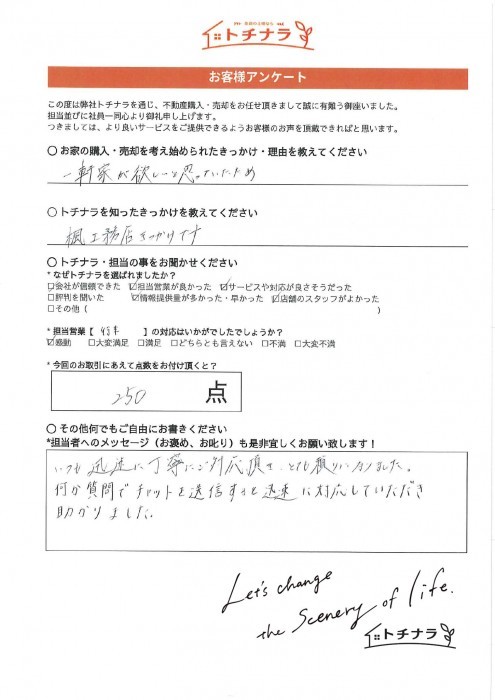 トチナラ
お客様アンケート
この度は弊社トチナラを通じ、不動産購入・売却をお任せ頂きまして誠に有難う御座いました。
担当並びに社員一同心より御礼申し上げます。
つきましては、より良いサービスをご提供できるようお客様のお声を頂戴できればと思います。
〇 お家の購入・売却を考え始められたきっかけ・理由を教えてください
一軒家が欲しいと思っていたため
〇 トチナラを知ったきっかけを教えてください
楓工務店きっかけです
〇 トチナラ・担当の事をお聞かせください
* なぜトチナラを選ばれましたか？
□会社が信頼できた ☑担当営業が良かった ☑サービスや対応が良さそうだった
□評判を聞いた ☑情報提供量が多かった・早かった ☑店舗のスタッフがよかった
□その他（ ）
* 担当営業【 】の対応はいかがでしたでしょうか？
☑感動 □大変満足 □満足 □どちらとも言えない □不満 □大変不満
* 今回のお取引にあえて点数をお付け頂くと？
250 点
〇 その他何でもご自由にお書きください
*担当者へのメッセージ（お褒め、お叱り）も是非宜しくお願い致します！
いつも迅速に丁寧にご対応頂き、とても頼りになりました。
何か質問でチャットを送信すると迅速に対応していただき
助かりました。
Let's change
the Scenery of life.
トチナラ